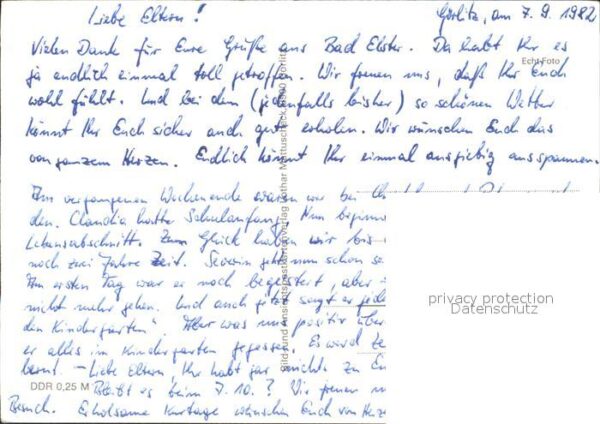 Liebe Eltern! Görlitz, am 7.9.1982
Vielen Dank für Eure Grüße aus Bad Elster. Da habt Ihr es
ja endlich einmal toll getroffen. Wir freuen uns, daß Ihr Euch
Echt-Foto
wohl fühlt. Und bei dem (jedenfalls bisher) so schönen Wetter
könnt Ihr Euch sicher auch gut erholen. Wir wünschen Euch das
von ganzem Herzen. Endlich könnt Ihr einmal ausgiebig ausspannen.
Am vergangenen Wochenende waren wir bei
den. Claudia hatte Schulanfang. Nun beginnt
Lebensabschnitt. Zum Glück haben wir bis
noch zwei Jahre Zeit. Severin geht nun schon
Am ersten Tag war er noch begeistert, aber
nicht mehr gehen. Und auch jetzt sagt er
den Kindergarten". Aber was uns positiv
er alles im Kindergarten gegessen. Es wird
- Liebe Eltern Ihr habt gar nichts zu
DDR 0,25 M
Bleibt es beim 7.10.? Wir freuen
Besuch. Erholsame Kurtage wünschen Euch von
Bild und Ansichtskartenverlag Lothar
privacy protection
Datenschutz